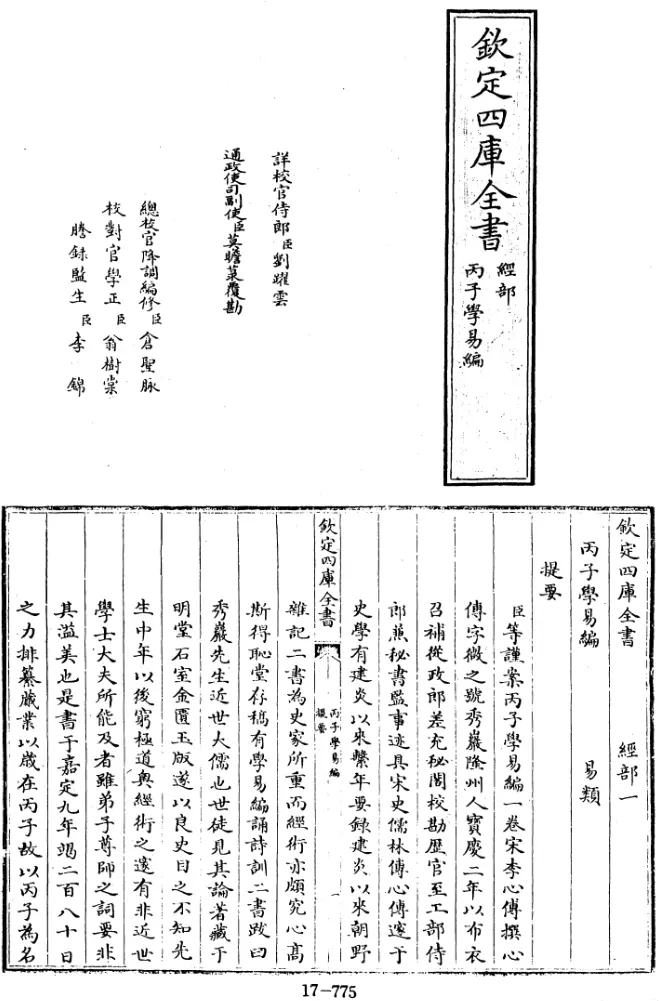 欽定四庫全書
經部
丙子學易編
詳校官侍郎臣劉躍雲
通政使司副使臣莫瞻菉覆勘
總校官降調編修臣倉聖脉
校對官學正臣翁樹棠
謄錄監生臣李錦
欽定四庫全書 經部一
丙子學易編 易類
提要
臣等謹案丙子學易編一卷宋李心傳撰心
傳字微之號秀巖隆州人寳慶二年以布衣
召補從政郎差充秘閣校勘歴官至工部侍
郎兼秘書監事迹具宋史儒林傳心傳邃于
史學有建炎以來繫年要錄建炎以來朝野
欽定四庫全書
丙子學易編
提要
一
雜記二書為史家所重而經術亦頗究心髙
斯得恥堂存稿有學易編誦詩訓二書跋曰
秀巖先生近世大儒也世徒見其論著藏于
明堂石室金匱玉版遂以良史目之不知先
生中年以後窮極道奥經術之邃有非近世
學士大夫所能及者雖弟子尊師之詞要非
其溢美也是書于嘉定九年竭二百八十日
之力排纂蕆業以歲在丙子故以丙子為名
17-775